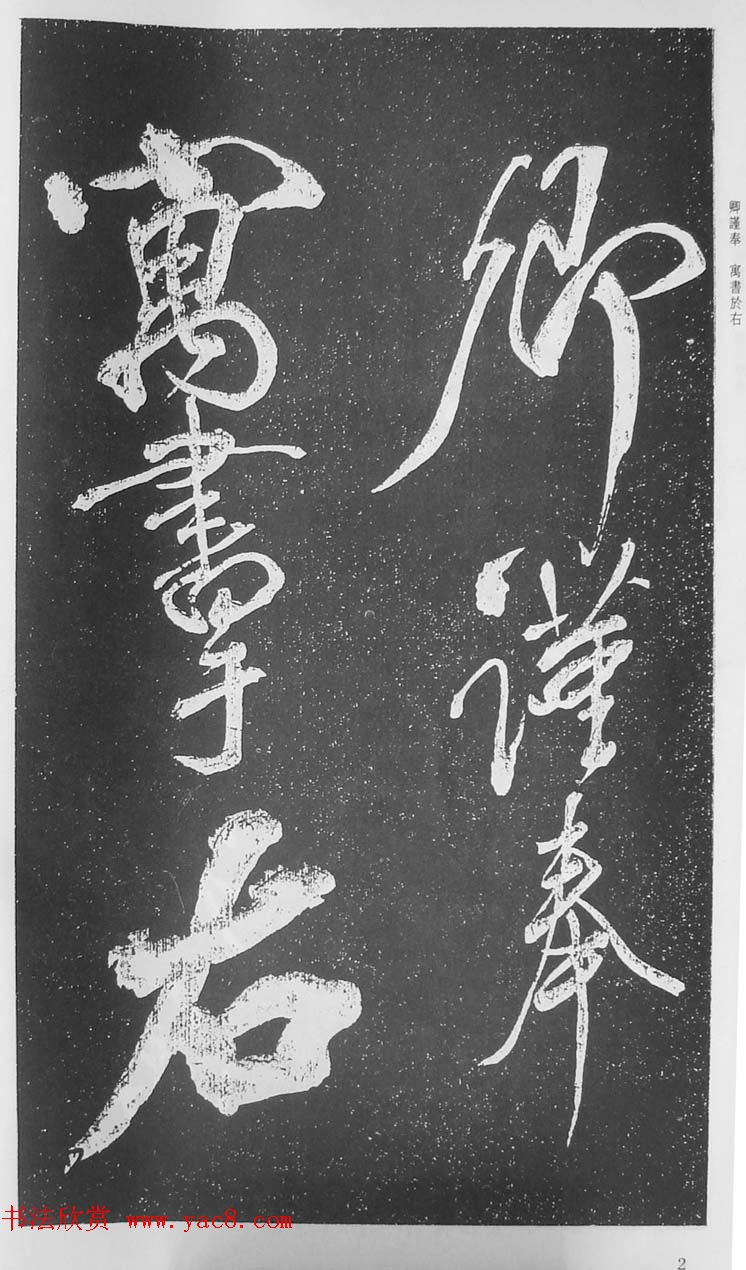 卿謹奉
寓書於右
卿謹奉 寓書於右
书法欣赏 www.yac8.com
2